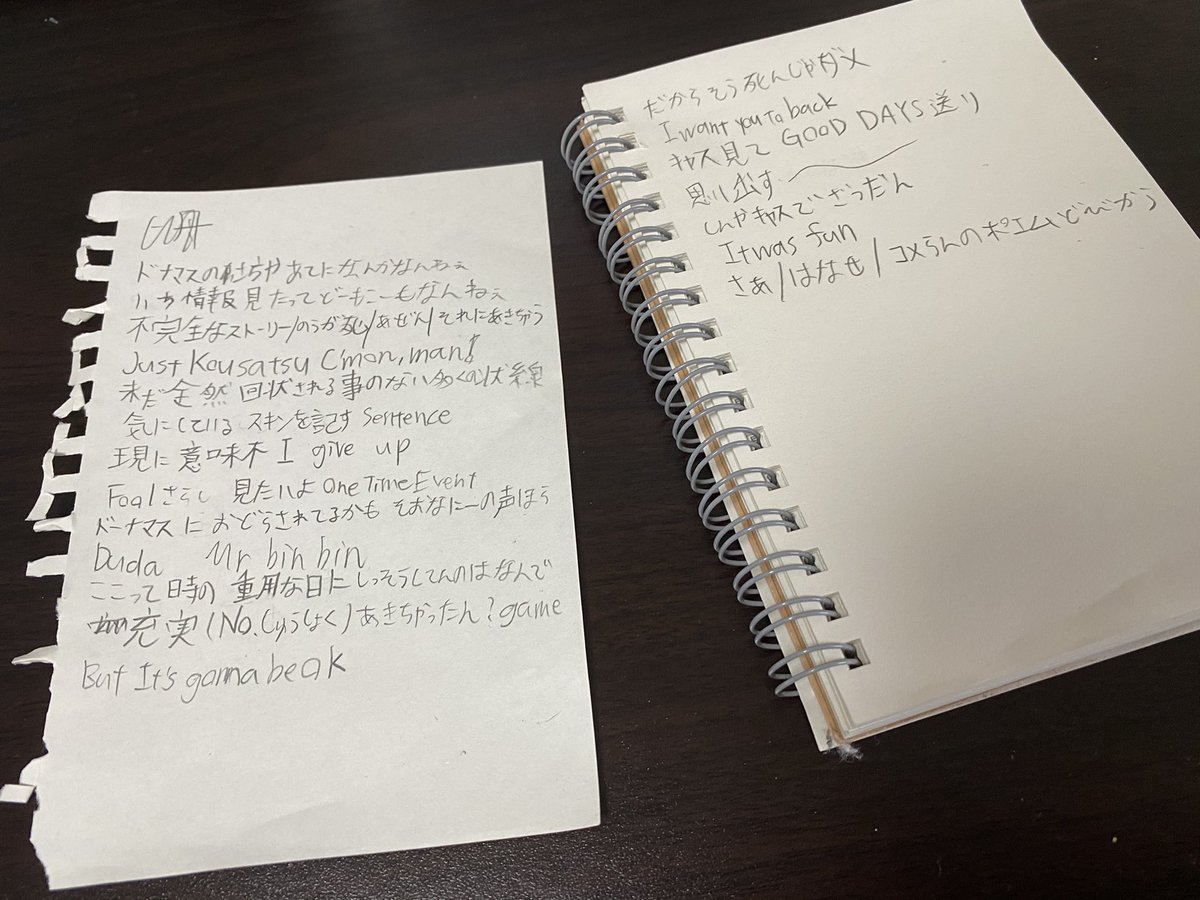 ドナマスの仕方やあてになんかなんねぇ
いち情報見たってどーもこーもなんねぇ
不完全なストーリー/のうが死/あぜん/それにあきちゃう
Just Kousatsu C'mon, man!
未だ全然回状される事のない多くの伏線
気にしている スキンを記す Sentence
現に意味不 I give up
Foolさらし 見たいよ One Time Event
ドーナマスに おどらされてるかも そおなにーの声ほう
Duda Mr bin bin
ここって日時の 重用な日にしっそうしてんのはなんで
充実 (No.しゅうしょく) あきちゃったん? game
But It's gonna be ok
だからそう死んじゃダメ
I want you to back
キャス見て GOOD DAYS送り
思い出す
しんやキャスでざつだん
It was fun
さあ/はなせ/コメらんのポエムいどびから